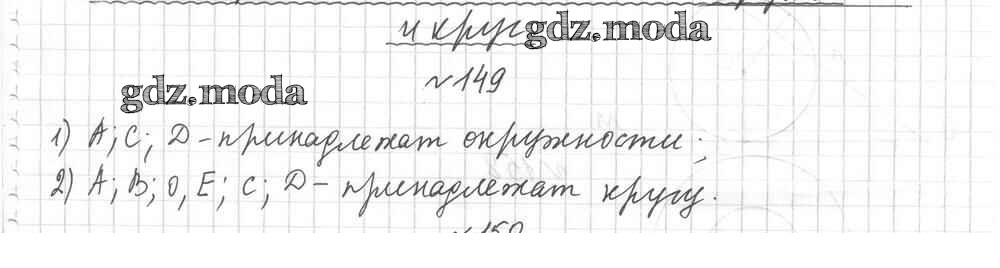 и круг
gdz.moda
№149
gdz.moda
1) А; С; D – принадлежат окружности;
2) А; В; О, Е; С; D – принадлежат кругу.
№150